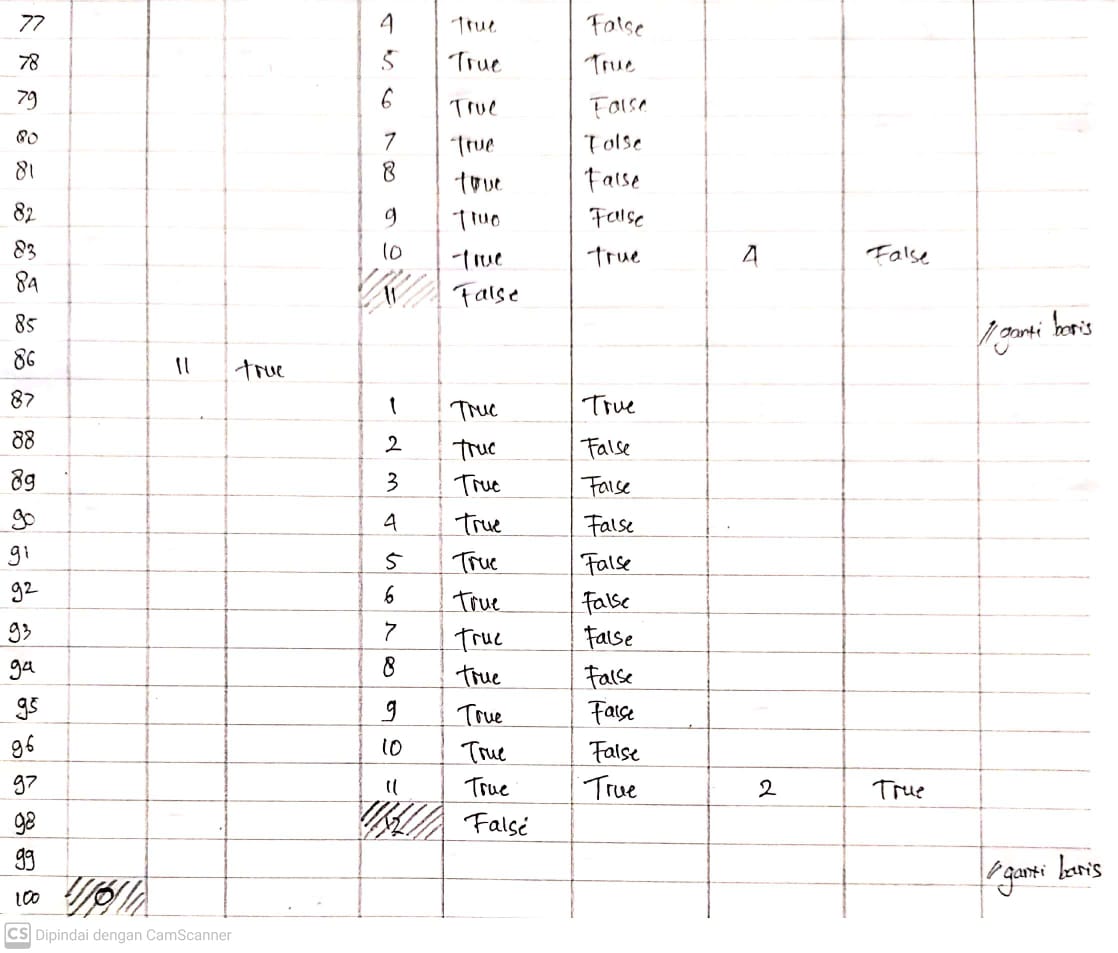 77 4 True False
78 5 True True
79 6 True False
80 7 True False
81 8 true False
82 9 True False
83 10 true true 4 False
84 11 False
85 // ganti baris
86 11 true
87 1 True True
88 2 True False
89 3 True False
90 4 True False
91 5 True False
92 6 True False
93 7 True False
94 8 True False
95 9 True False
96 10 True False
97 11 True True 2 True
98 12 False
99 // ganti baris
100 0
CS Dipindai dengan CamScanner